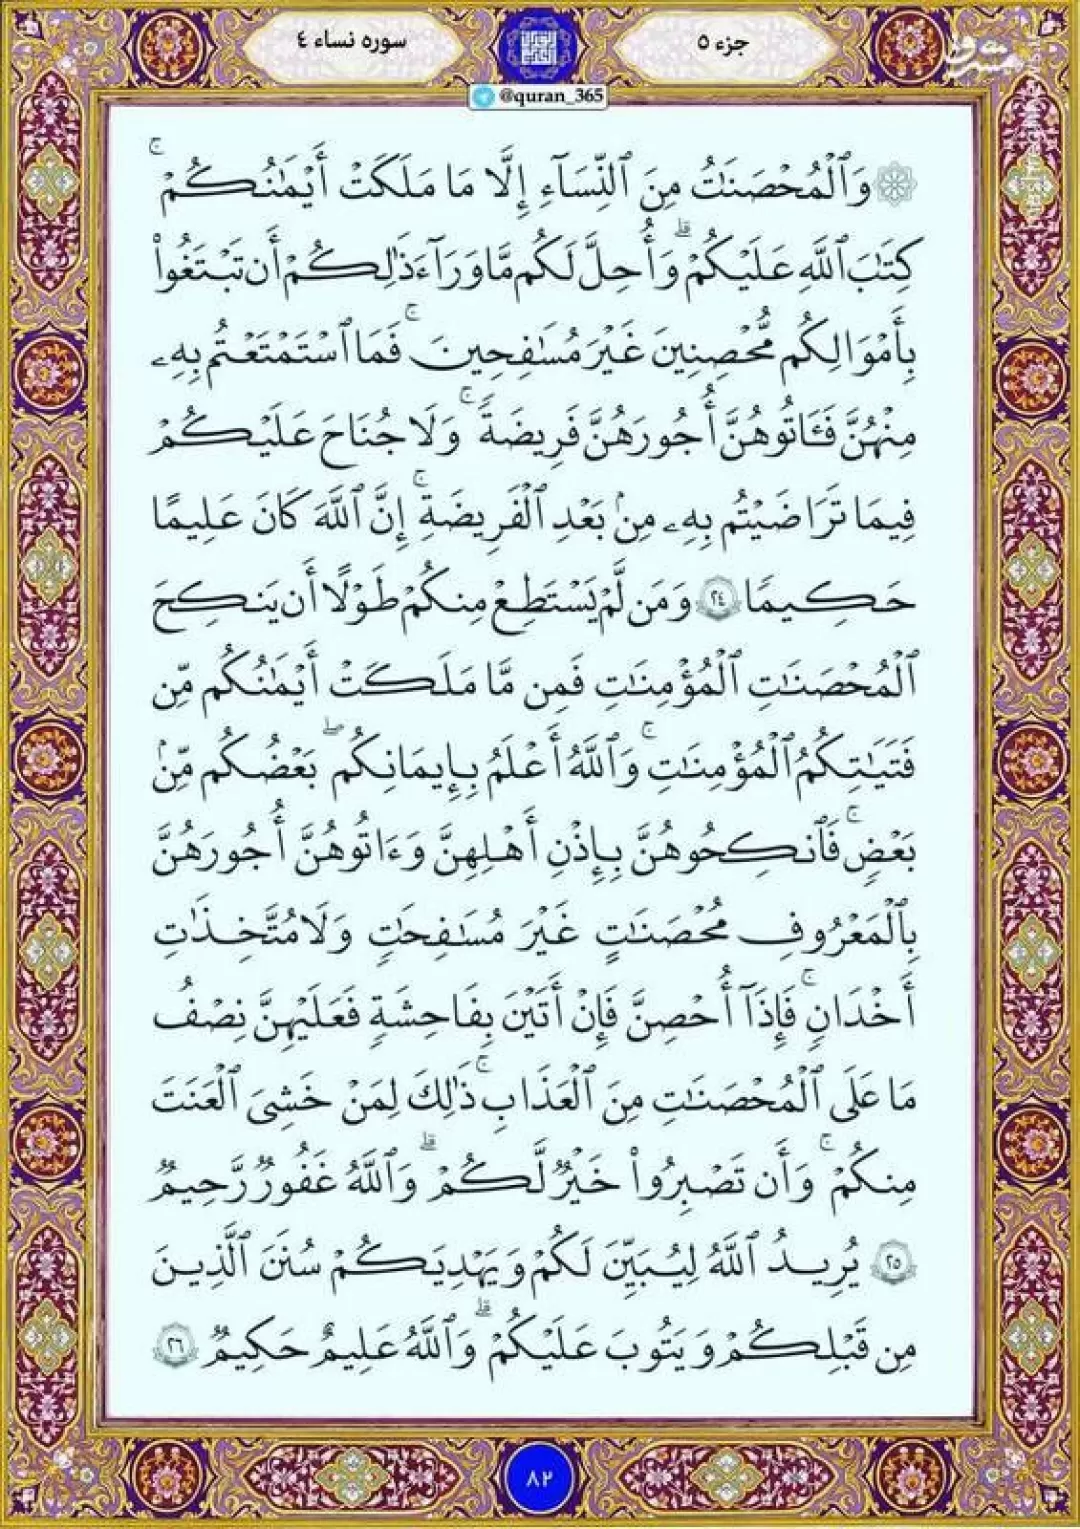 جزء ٥
سوره نساء ٤
مشرق
@quran_365
۞ وَٱلْمُحْصَنَٰتُ مِنَ ٱلنِّسَآءِ إِلَّا مَا مَلَكَتْ أَيْمَٰنُكُمْ ۚ
كِتَٰبَ ٱللَّهِ عَلَيْكُمْ ۗ وَأُحِلَّ لَكُم مَّا وَرَآءَ ذَٰلِكُمْ أَن تَبْتَغُوا۟
بِأَمْوَٰلِكُم مُّحْصِنِينَ غَيْرَ مُسَٰفِحِينَ ۚ فَمَا ٱسْتَمْتَعْتُم بِهِۦ
مِنْهُنَّ فَـَٔاتُوهُنَّ أُجُورَهُنَّ فَرِيضَةً ۚ وَلَا جُنَاحَ عَلَيْكُمْ
فِيمَا تَرَٰضَيْتُم بِهِۦ مِنۢ بَعْدِ ٱلْفَرِيضَةِ ۚ إِنَّ ٱللَّهَ كَانَ عَلِيمًا
حَكِيمًا ٢٤ وَمَن لَّمْ يَسْتَطِعْ مِنكُمْ طَوْلًا أَن يَنكِحَ
ٱلْمُحْصَنَٰتِ ٱلْمُؤْمِنَٰتِ فَمِن مَّا مَلَكَتْ أَيْمَٰنُكُم مِّن
فَتَيَٰتِكُمُ ٱلْمُؤْمِنَٰتِ ۚ وَٱللَّهُ أَعْلَمُ بِإِيمَٰنِكُم ۖ بَعْضُكُم مِّنۢ
بَعْضٍ ۚ فَٱنكِحُوهُنَّ بِإِذْنِ أَهْلِهِنَّ وَءَاتُوهُنَّ أُجُورَهُنَّ
بِٱلْمَعْرُوفِ مُحْصَنَٰتٍ غَيْرَ مُسَٰفِحَٰتٍ وَلَا مُتَّخِذَٰتِ
أَخْدَانٍ ۚ فَإِذَآ أُحْصِنَّ فَإِنْ أَتَيْنَ بِفَٰحِشَةٍ فَعَلَيْهِنَّ نِصْفُ
مَا عَلَى ٱلْمُحْصَنَٰتِ مِنَ ٱلْعَذَابِ ۚ ذَٰلِكَ لِمَنْ خَشِىَ ٱلْعَنَتَ
مِنكُمْ ۚ وَأَن تَصْبِرُوا۟ خَيْرٌ لَّكُمْ ۗ وَٱللَّهُ غَفُورٌ رَّحِيمٌ
٢٥ يُرِيدُ ٱللَّهُ لِيُبَيِّنَ لَكُمْ وَيَهْدِيَكُمْ سُنَنَ ٱلَّذِينَ
مِن قَبْلِكُمْ وَيَتُوبَ عَلَيْكُمْ ۗ وَٱللَّهُ عَلِيمٌ حَكِيمٌ ٢٦
٨٢